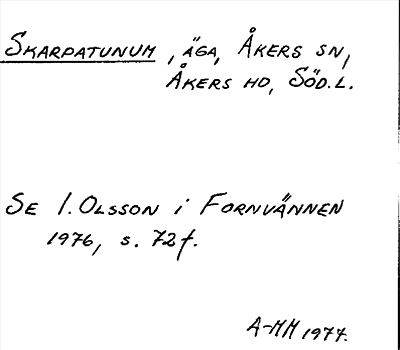 SKARPATUNUM, ÄGA, ÅKERS SN,
ÅKERS HD, SÖD.L.
SE I. OLSSON i FORNVÄNNEN
1976, s. 72f.
A-MM 1977.